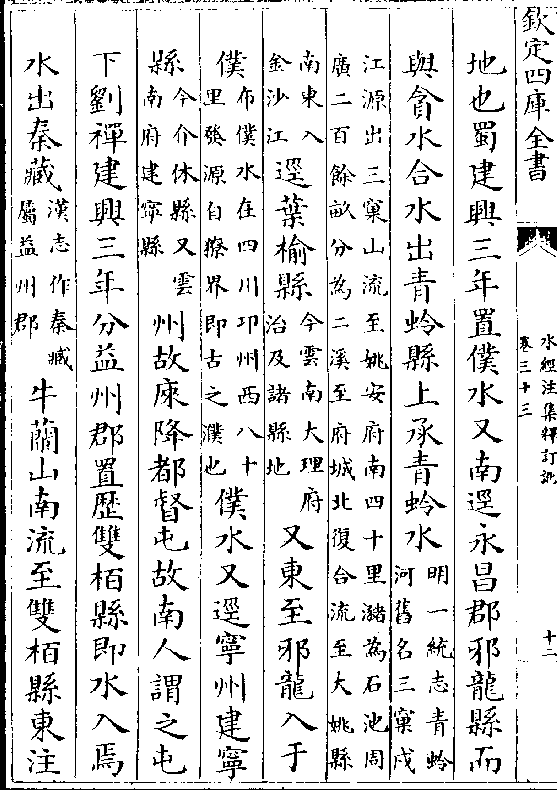 欽定四庫全書
水經注集釋訂訛
卷三十三
十二
地也蜀建興三年置僕水又南逕永昌郡邪龍縣而
與貪水合水出青蛉縣上承青蛉水明一統志青蛉河舊名三窠戍
江源出三窠山流至姚安府南四十里瀦為石池周廣二百餘畝分為二溪至府城北復合流至大姚縣
南東入金沙江逕葉榆縣今雲南大理府治及諸縣地又東至邪龍入于
僕布僕水在四川邛州西八十里發源自獠界即古之濮也僕水又逕寧州建寧
縣今介休縣又雲南府建寧縣州故庲降都督屯故南人謂之屯
下劉禪建興三年分益州郡置歷雙栢縣即水入焉
水出秦藏漢志作秦臧屬益州郡牛蘭山南流至雙栢縣東注